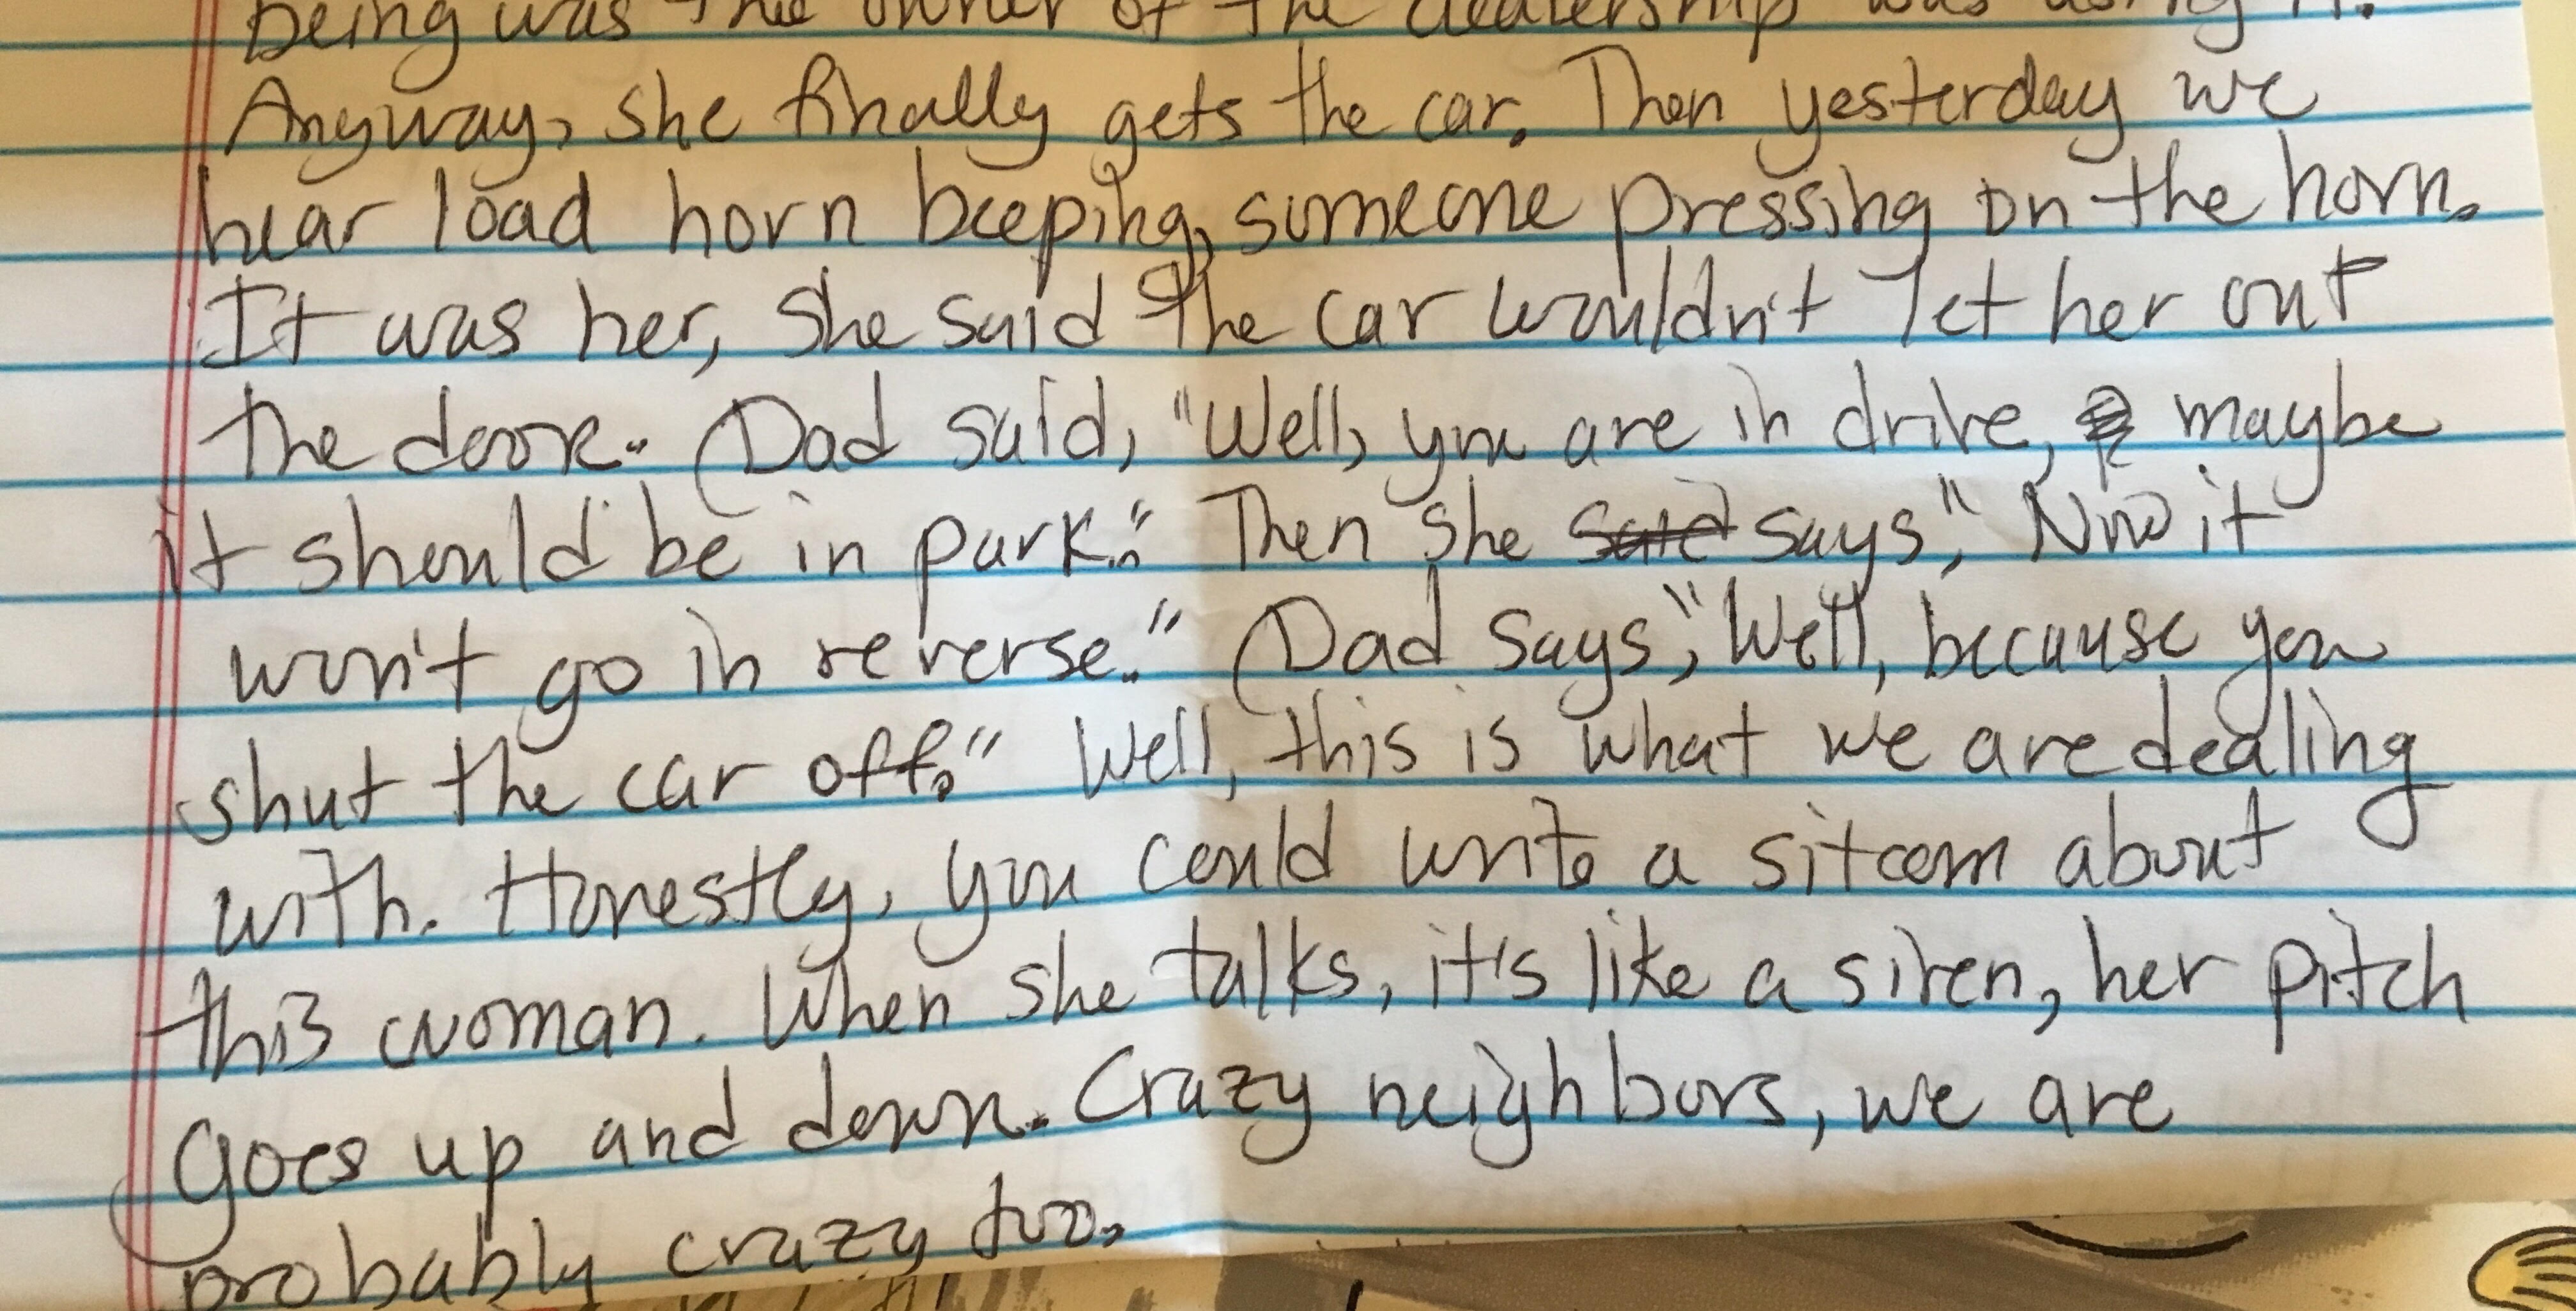 being was the owner of the dealership was using it.
Anyway, she finally gets the car. Then yesterday we
hear load horn beeping, someone pressing on the horn.
It was her, she said the car wouldn't let her out
the doore. Dad said, "Well, you are in drive, maybe
it should be in park." Then she said says, "Now it
won't go in reverse." Dad says, "Well, because you
shut the car off." Well, this is what we are dealing
with. Honestly, you could write a sitcom about
this woman. When she talks, it's like a siren, her pitch
goes up and down. Crazy neighbors, we are
probably crazy too.